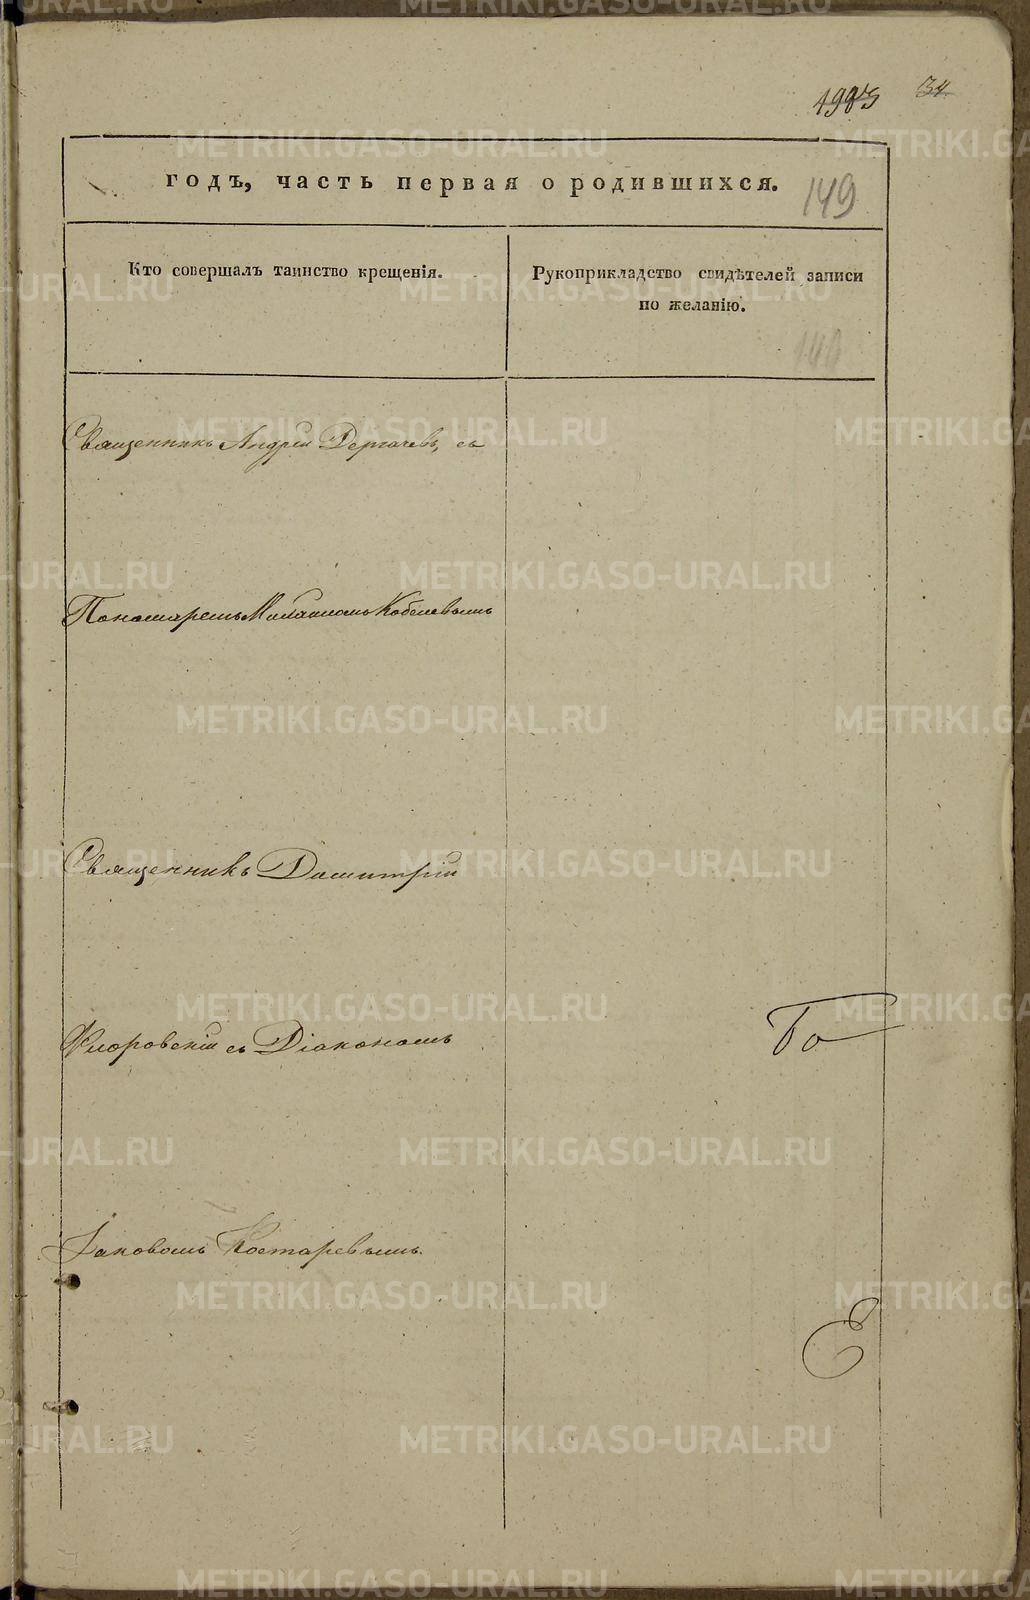 34
годъ, часть первая о родившихся.
149
Кто совершалъ таинство крещенія.
Рукоприкладство свидѣтелей записи
по желанію.
140
Священникъ Андрей Дергачевъ, съ
Пономаремъ Михаиломъ Кобелевымъ
Священникъ Димитрій
Флоровскій съ Діакономъ
Іаковомъ Костаревымъ.
METRIKI.GASO-URAL.RU